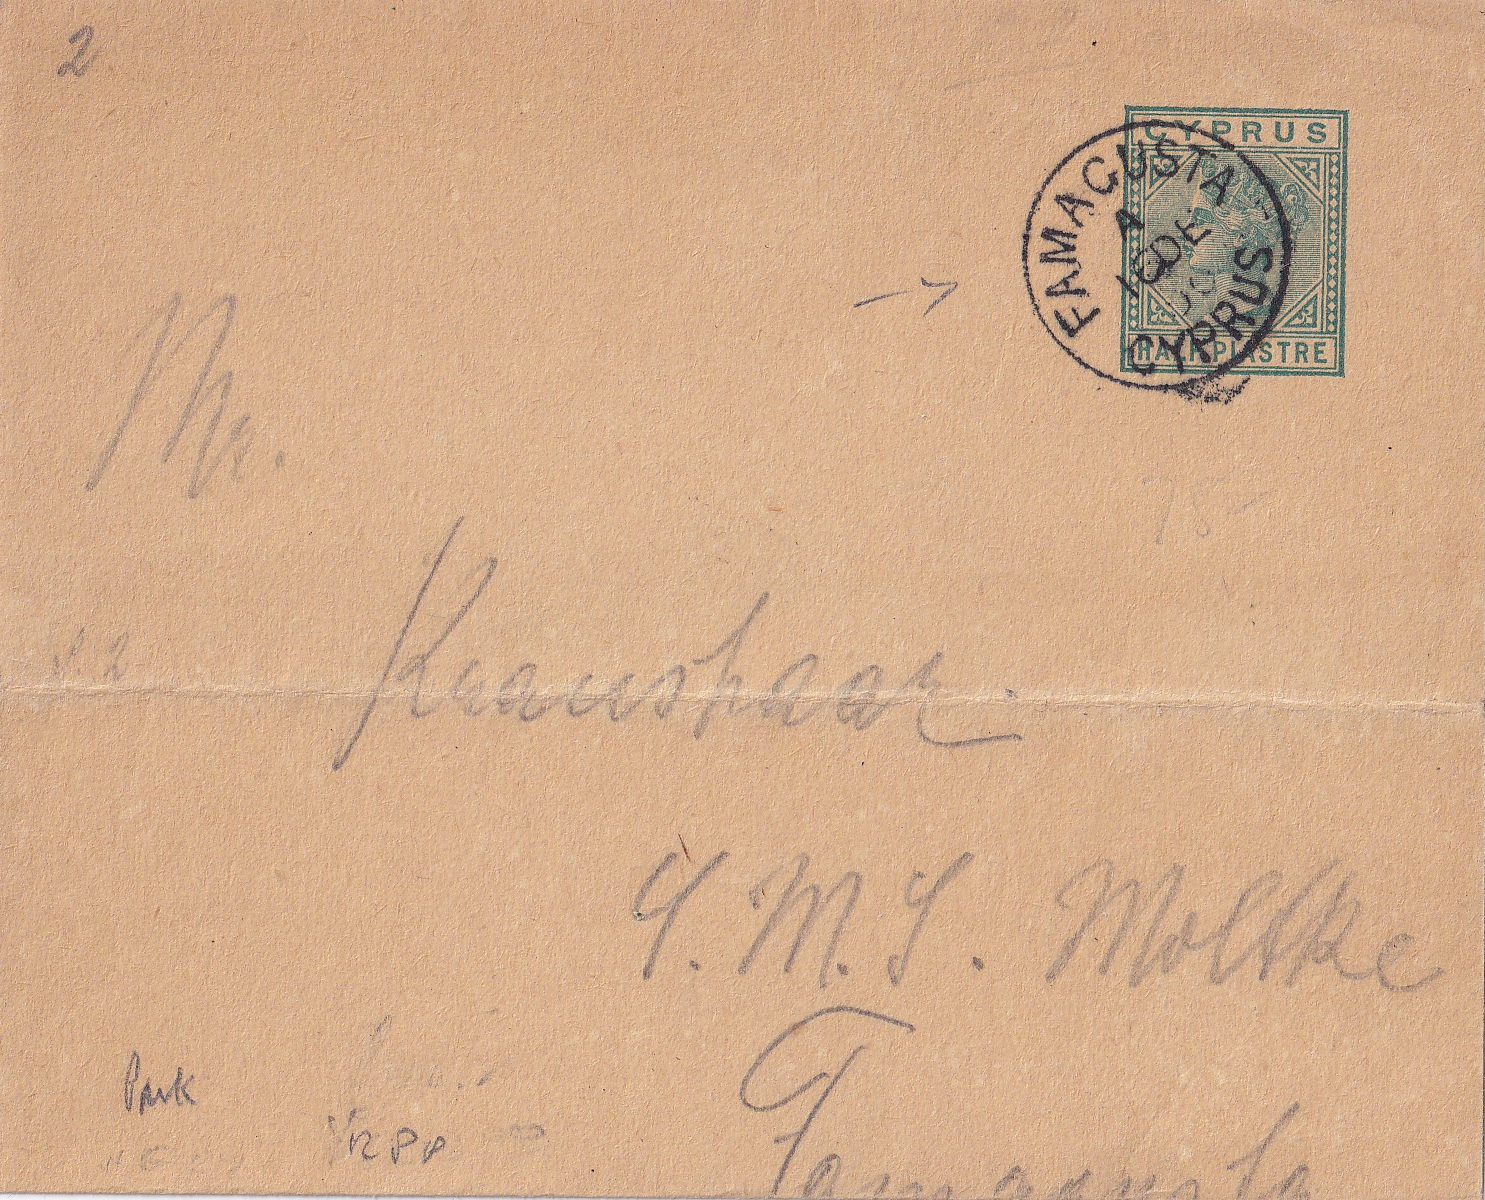 2
CYPRUS
FAMAGUSTA
A
16 DE
CYPRUS
HALF PIASTRE
Mr.
75-
Kranshaar.
S. M. S. Moltke
Famagusta